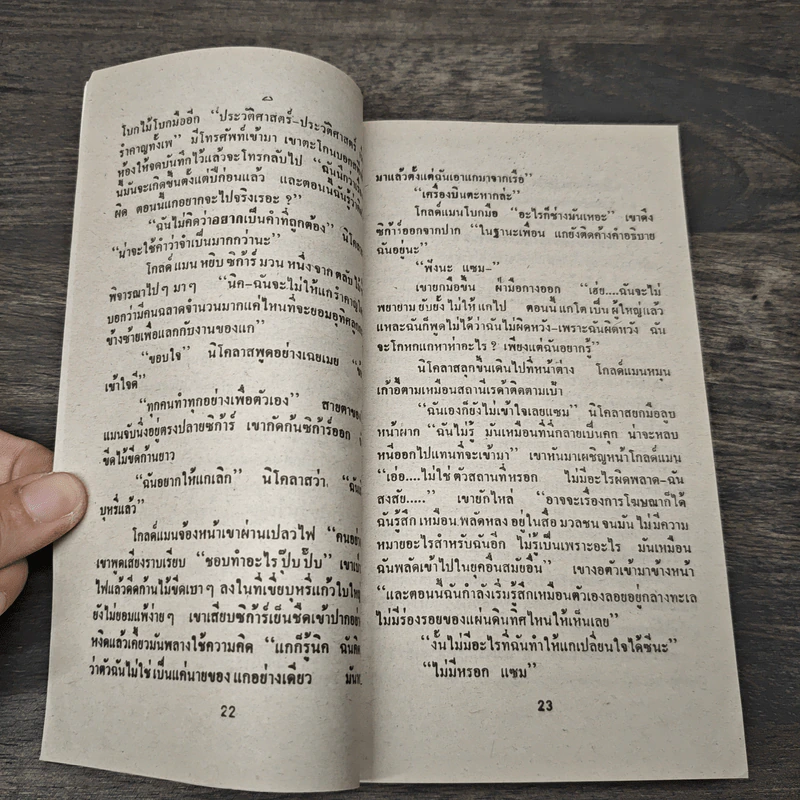 โบกไม้โบกมืออีก “ประวัติศาสตร์-ประวัติศาสตร์
รำคาญทั้งเพ” มีโทรศัพท์เข้ามา เขาตะโกนบอก
ห้องให้จดบันทึกไว้แล้วจะโทรกลับไป “ฉันนึก
นี้มันจะเกิดขึ้นตั้งแต่ปีก่อนแล้ว และตอนนี้ฉันรู้ว่า
ผิด ตอนนี้แกอยากจะไปจริงเรอะ ?”
“ฉันไม่คิดว่าอยากเป็นคำที่ถูกต้อง”
“น่าจะใช้คำว่าจำเป็นมากกว่านะ”
โกลด์แมน หยิบ ซิก้าร์ มวน หนึ่ง จาก ตลับ
พิจารณาไป ๆ มา ๆ “นิค-ฉันจะไม่ให้แกรำคาญ
บอกว่ามีคนฉลาดจำนวนมากแค่ไหนที่จะยอมอุทิศ
ข้างซ้ายเพื่อแลกกับงานของแก”
“ขอบใจ” นิโคลาสพูดอย่างเฉยเมย
เข้าใจดี”
“ทุกคนทำทุกอย่างเพื่อตัวเอง” สายตาของ
แมนจับนิ่งอยู่ตรงปลายซิก้าร์ เขากัดก้นซิก้าร์ออก
ขีดไม้ขีดก้านยาว
“ฉันอยากให้แกเลิก” นิโคลาสว่า,
บุหรี่แล้ว”
โกลด์แมนจ้องหน้าเขาผ่านเปลวไฟ
เขาพูดเสียงราบเรียบ “ชอบทำอะไรปุ๊บปั๊บ”
ไฟแล้วดีดก้านไม้ขีดเบา ๆ ลงในที่เขี่ยบุหรี่แก้วใบใหญ่
ยังไม่ยอมแพ้ง่าย ๆ เขาเสียบซิก้าร์เย็นชืดเข้าปาก
หงิดแล้วเคี้ยวมันพลางใช้ความคิด “แกก็รู้นิค
ว่าตัวฉันไม่ใช่ เป็นแค่นายของ แกอย่างเดียว
22
มาแล้วตั้งแต่ฉันเอาแกมาจากเรือ”
“เครื่องบินตะหากล่ะ”
โกลด์แมนโบกมือ “อะไรก็ช่างมันเหอะ” เขาดึง
ซิก้าร์ออกจากปาก “ในฐานะเพื่อน แกยังติดค้างคำอธิบาย
ฉันอยู่นะ”
“ฟังนะ แซม-”
เขายกมือขึ้น ฝ่ามือกางออก “เฮ่ย....ฉันจะไม่
พยายาม ยับยั้ง ไม่ให้ แกไป ตอนนี้ แกโต เป็น ผู้ใหญ่แล้ว
แหละฉันก็พูดไม่ได้ว่าฉันไม่ผิดหวัง-เพราะฉันผิดหวัง ฉัน
จะโกหกแกหาห่าอะไร ? เพียงแต่ฉันอยากรู้”
นิโคลาสลุกขึ้นเดินไปที่หน้าต่าง โกลด์แมนหมุน
เก้าอี้ตามเหมือนสถานีเรด้าติดตามเป้า
“ฉันเองก็ยังไม่เข้าใจเลยแซม” นิโคลาสยกมือลูบ
หน้าผาก “ฉันไม่รู้ มันเหมือนที่นี่กลายเป็นคุก น่าจะหลบ
หนีออกไปแทนที่จะเข้ามา” เขาหันมาเผชิญหน้าโกลด์แมน
“เอ่อ....ไม่ใช่ ตัวสถานที่หรอก ไม่มีอะไรผิดพลาด-ฉัน
สงสัย.....” เขายักไหล่ “อาจจะเรื่องการโฆษณาก็ได้
ฉันรู้สึก เหมือน พลัดหลง อยู่ใน สื่อ มวลชน จนมัน ไม่มีความ
หมายอะไรสำหรับฉันอีก ไม่รู้เป็นเพราะอะไร มันเหมือน
ฉันพลัดเข้าไปในยุคอื่นสมัยอื่น” เขางอตัวเข้ามาข้างหน้า
“และตอนนี้ฉันกำลังเริ่มรู้สึกเหมือนตัวเองลอยอยู่กลางทะเล
ไม่มีร่องรอยของแผ่นดินทิศไหนให้เห็นเลย”
“งั้นไม่มีอะไรที่ฉันทำให้แกเปลี่ยนใจได้ซีนะ”
“ไม่มีหรอก แซม”
23